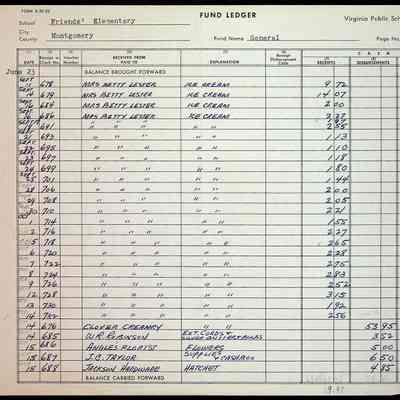 FORM A-30-25
School Friends' Elementary
FUND LEDGER
Virginia Public Sch
City
County: Montgomery
Fund Name General
Page No.
CASH
(1) (2) (3) (4) (5) (6) (7) (8)
Voucher Number RECEIVED FROM PAID TO EXPLANATION Receipt Disbursement Code RECEIPTS DISBURSEMENTS
June 23 BALANCE BROUGHT FORWARD
Sept 678 MRS BETTY LESTER ICE CREAM 9 72
14 679 MRS BETTY LESTER ICE CREAM 14 07
684 MRS BETTY LESTER ICE CREAM 2 00
16 686 MRS BETTY LESTER ICE CREAM
691 " " " " " 2 55
21 693 " " " " " 1 13
22 695 " " " " " 1 10
23 697 " " " " " 1 18
24 699 " " " " " 1 80
25 701 " " " " " 1 44
28 706 " " " " " 2 00
29 708 " " " " " 2 05
30 710 " " " " " 2 21
Oct 1 714 " " " " " 1 55
2 716 " " " " " 2 27
5 718 " " " " " 2 65
6 720 " " " " " 2 28
7 722 " " " " " 2 75
8 724 " " " " " 2 83
9 726 " " " " " 2 52
12 728 " " " " " 3 15
13 730 " " " " " 1 92
14 732 " " " " " 2 56
14 676 CLOVER CREAMRY " " 53 95
14 685 W.R. ROBINSON EXT. CORDS & 3 52
15 686 ANGLES FLORIST FLOWERS 5 00
15 687 J.C. TAYLOR SUPPLIES & CASH BOX 6 50
15 688 JACKSON HARDWARE HATCHET 4 85
BALANCE CARRIED FORWARD